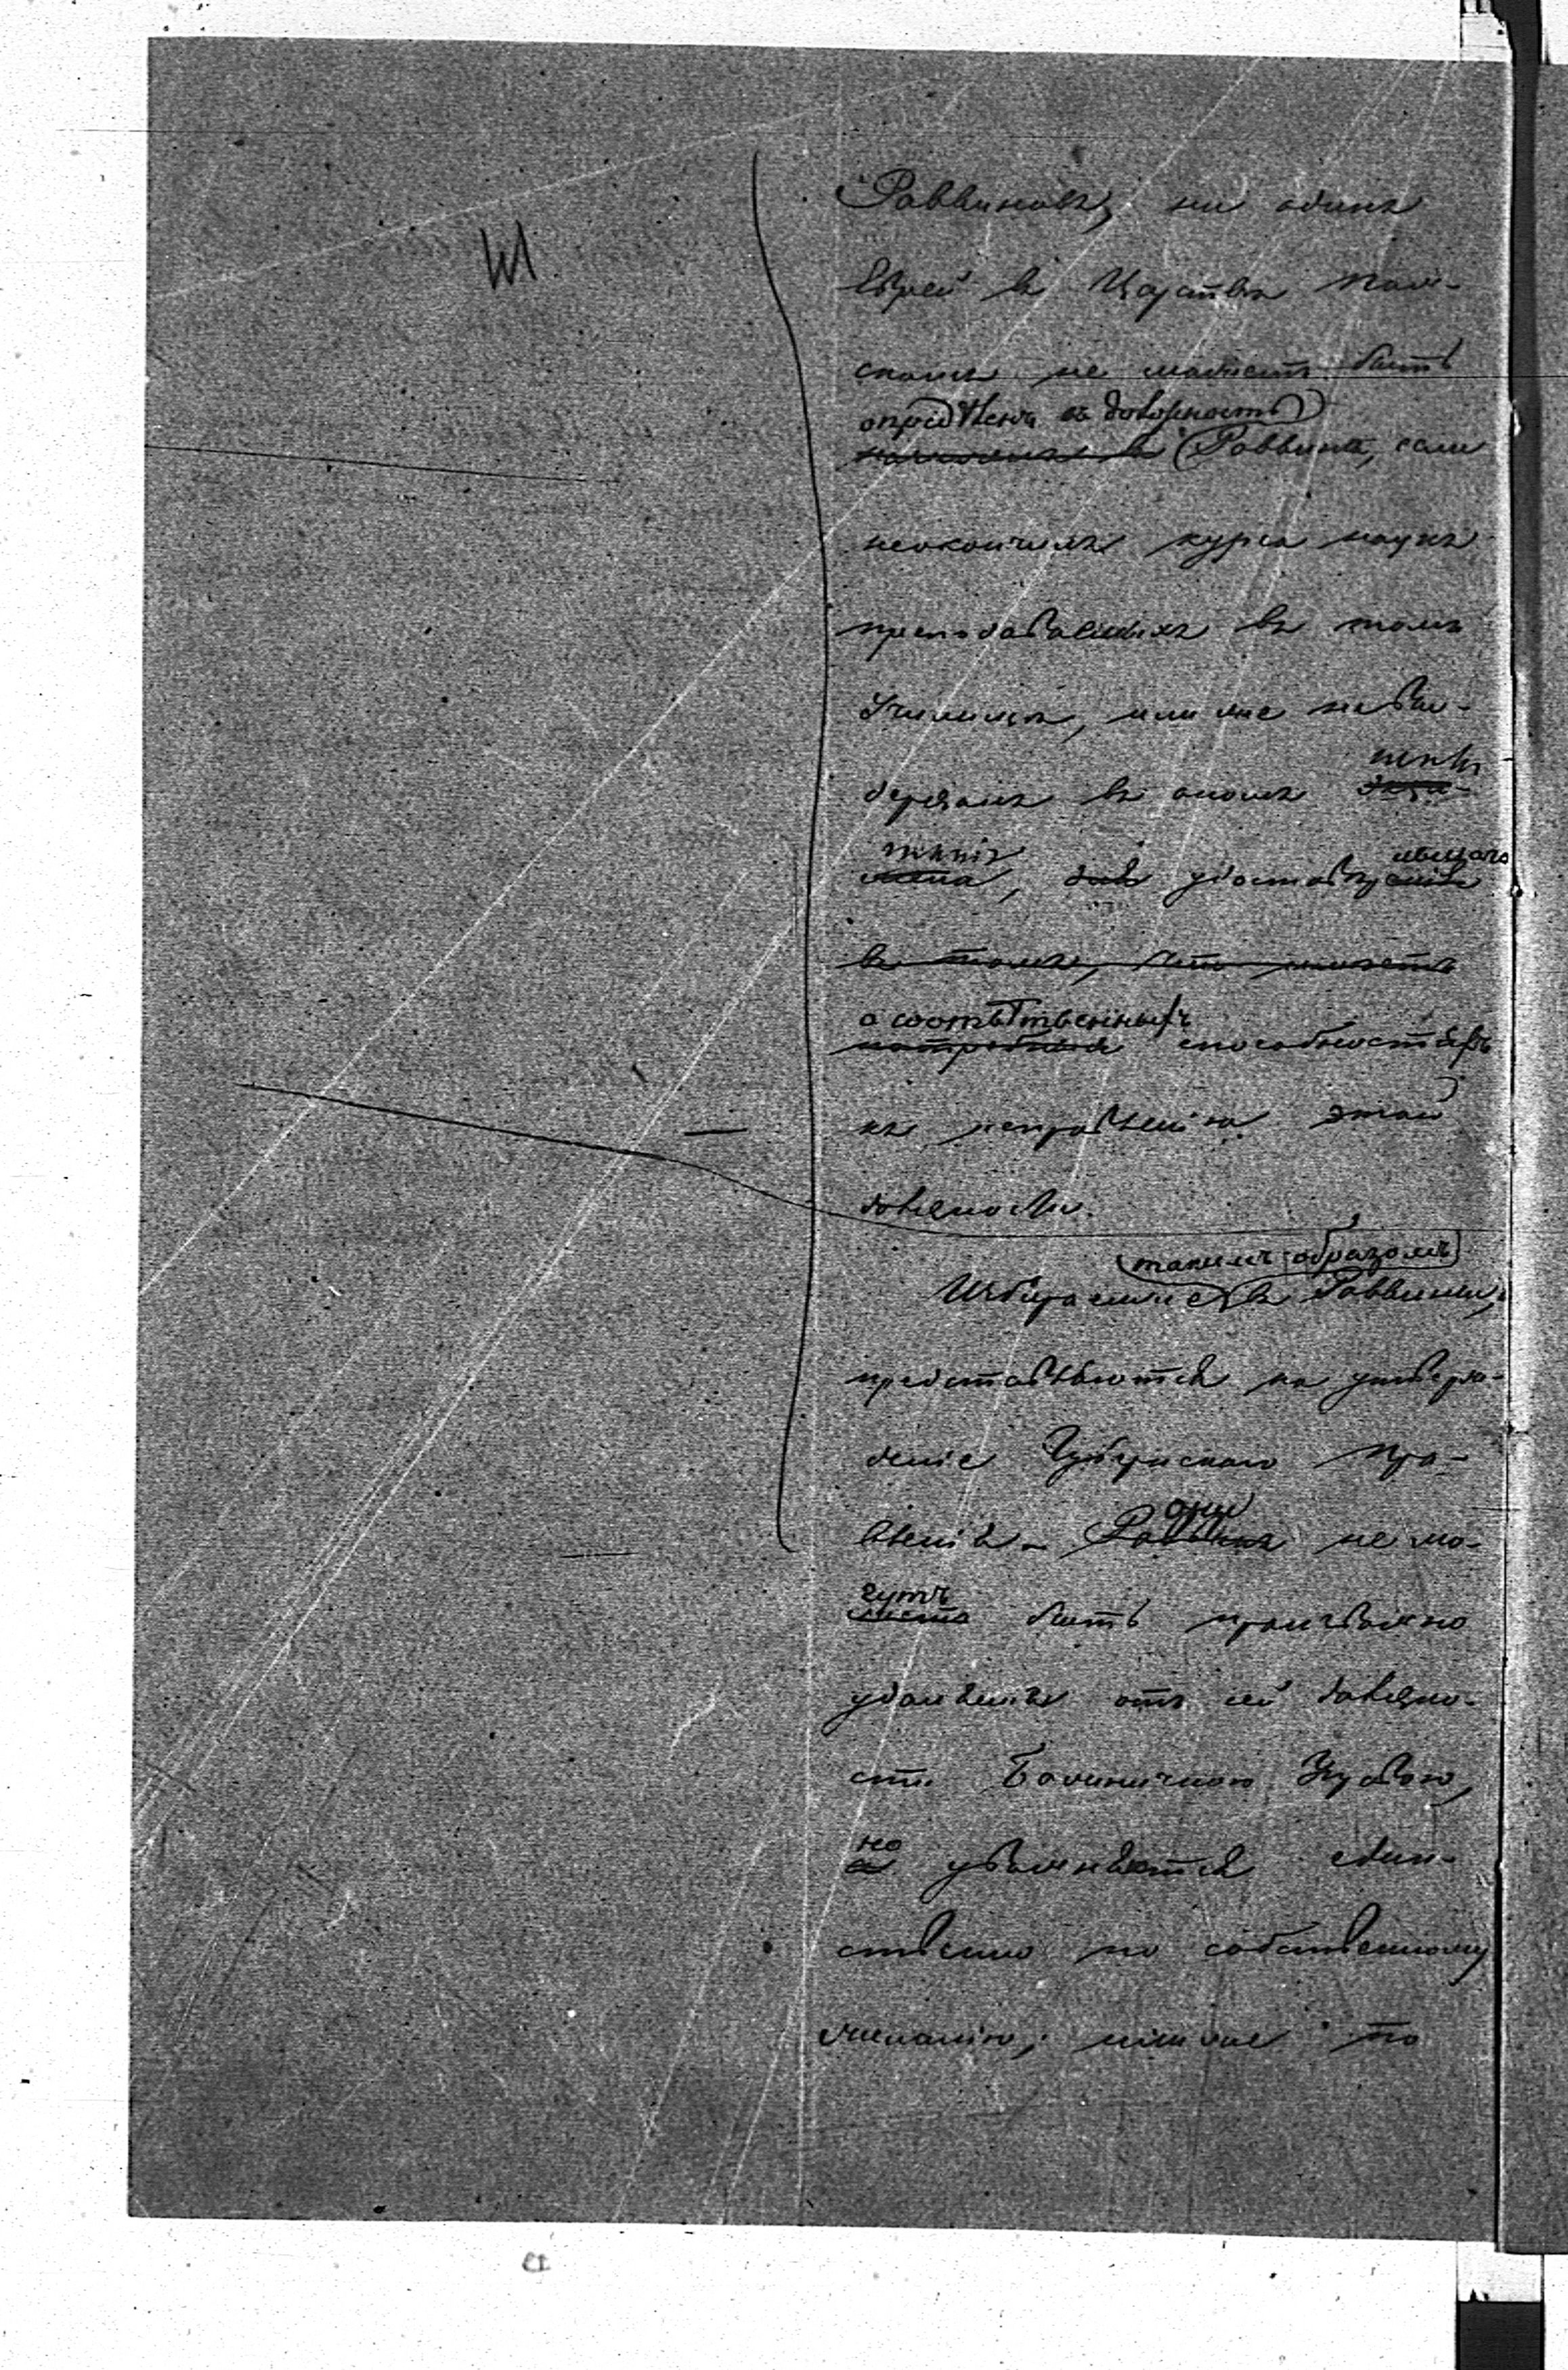 Раввиновъ, ни одинъ
Еврей въ Царствѣ Поль-
скомъ не можетъ быть
опредѣленъ въ должность
Раввина, если
неокончилъ курса наукъ
преподаваемыхъ въ томъ
Училищѣ, или же невы-
держалъ въ ономъ
удостовѣ
въ томъ, что имѣетъ
о соотвѣтственныхъ
потребныя способностяхъ
къ исправленію этой
должности.
такимъ образомъ
Избираемые въ Раввины,
представляются на утверж-
деніе Губернскаго Пра-
они
вленія. Раввинъ не мо-
гутъ
жетъ быть произвольно
удалены отъ сей должно-
сти Божничною
но
а увольняются един-
ственно по собственному
желанію, или же по